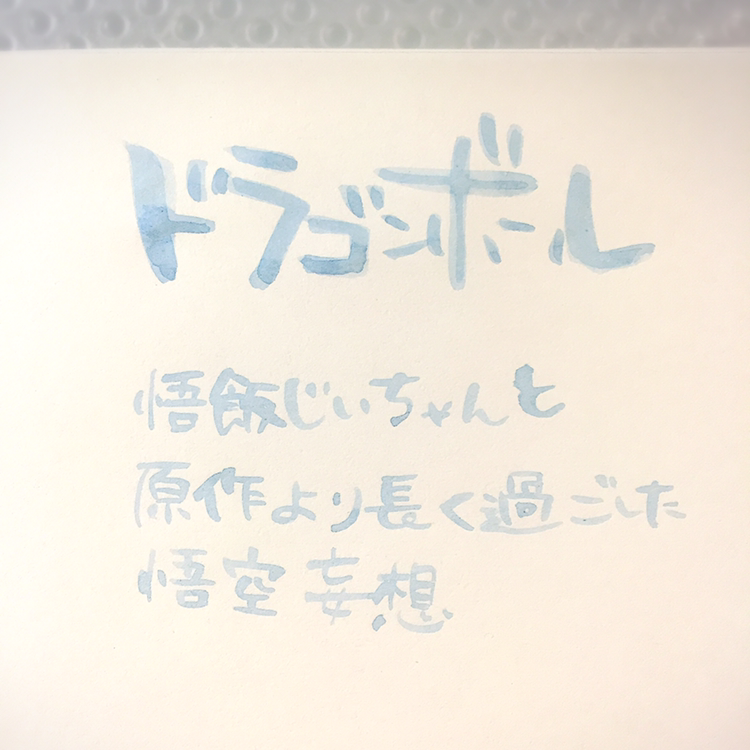 ドラゴンボール
悟飯じいちゃんと
原作より長く過ごした
悟空妄想